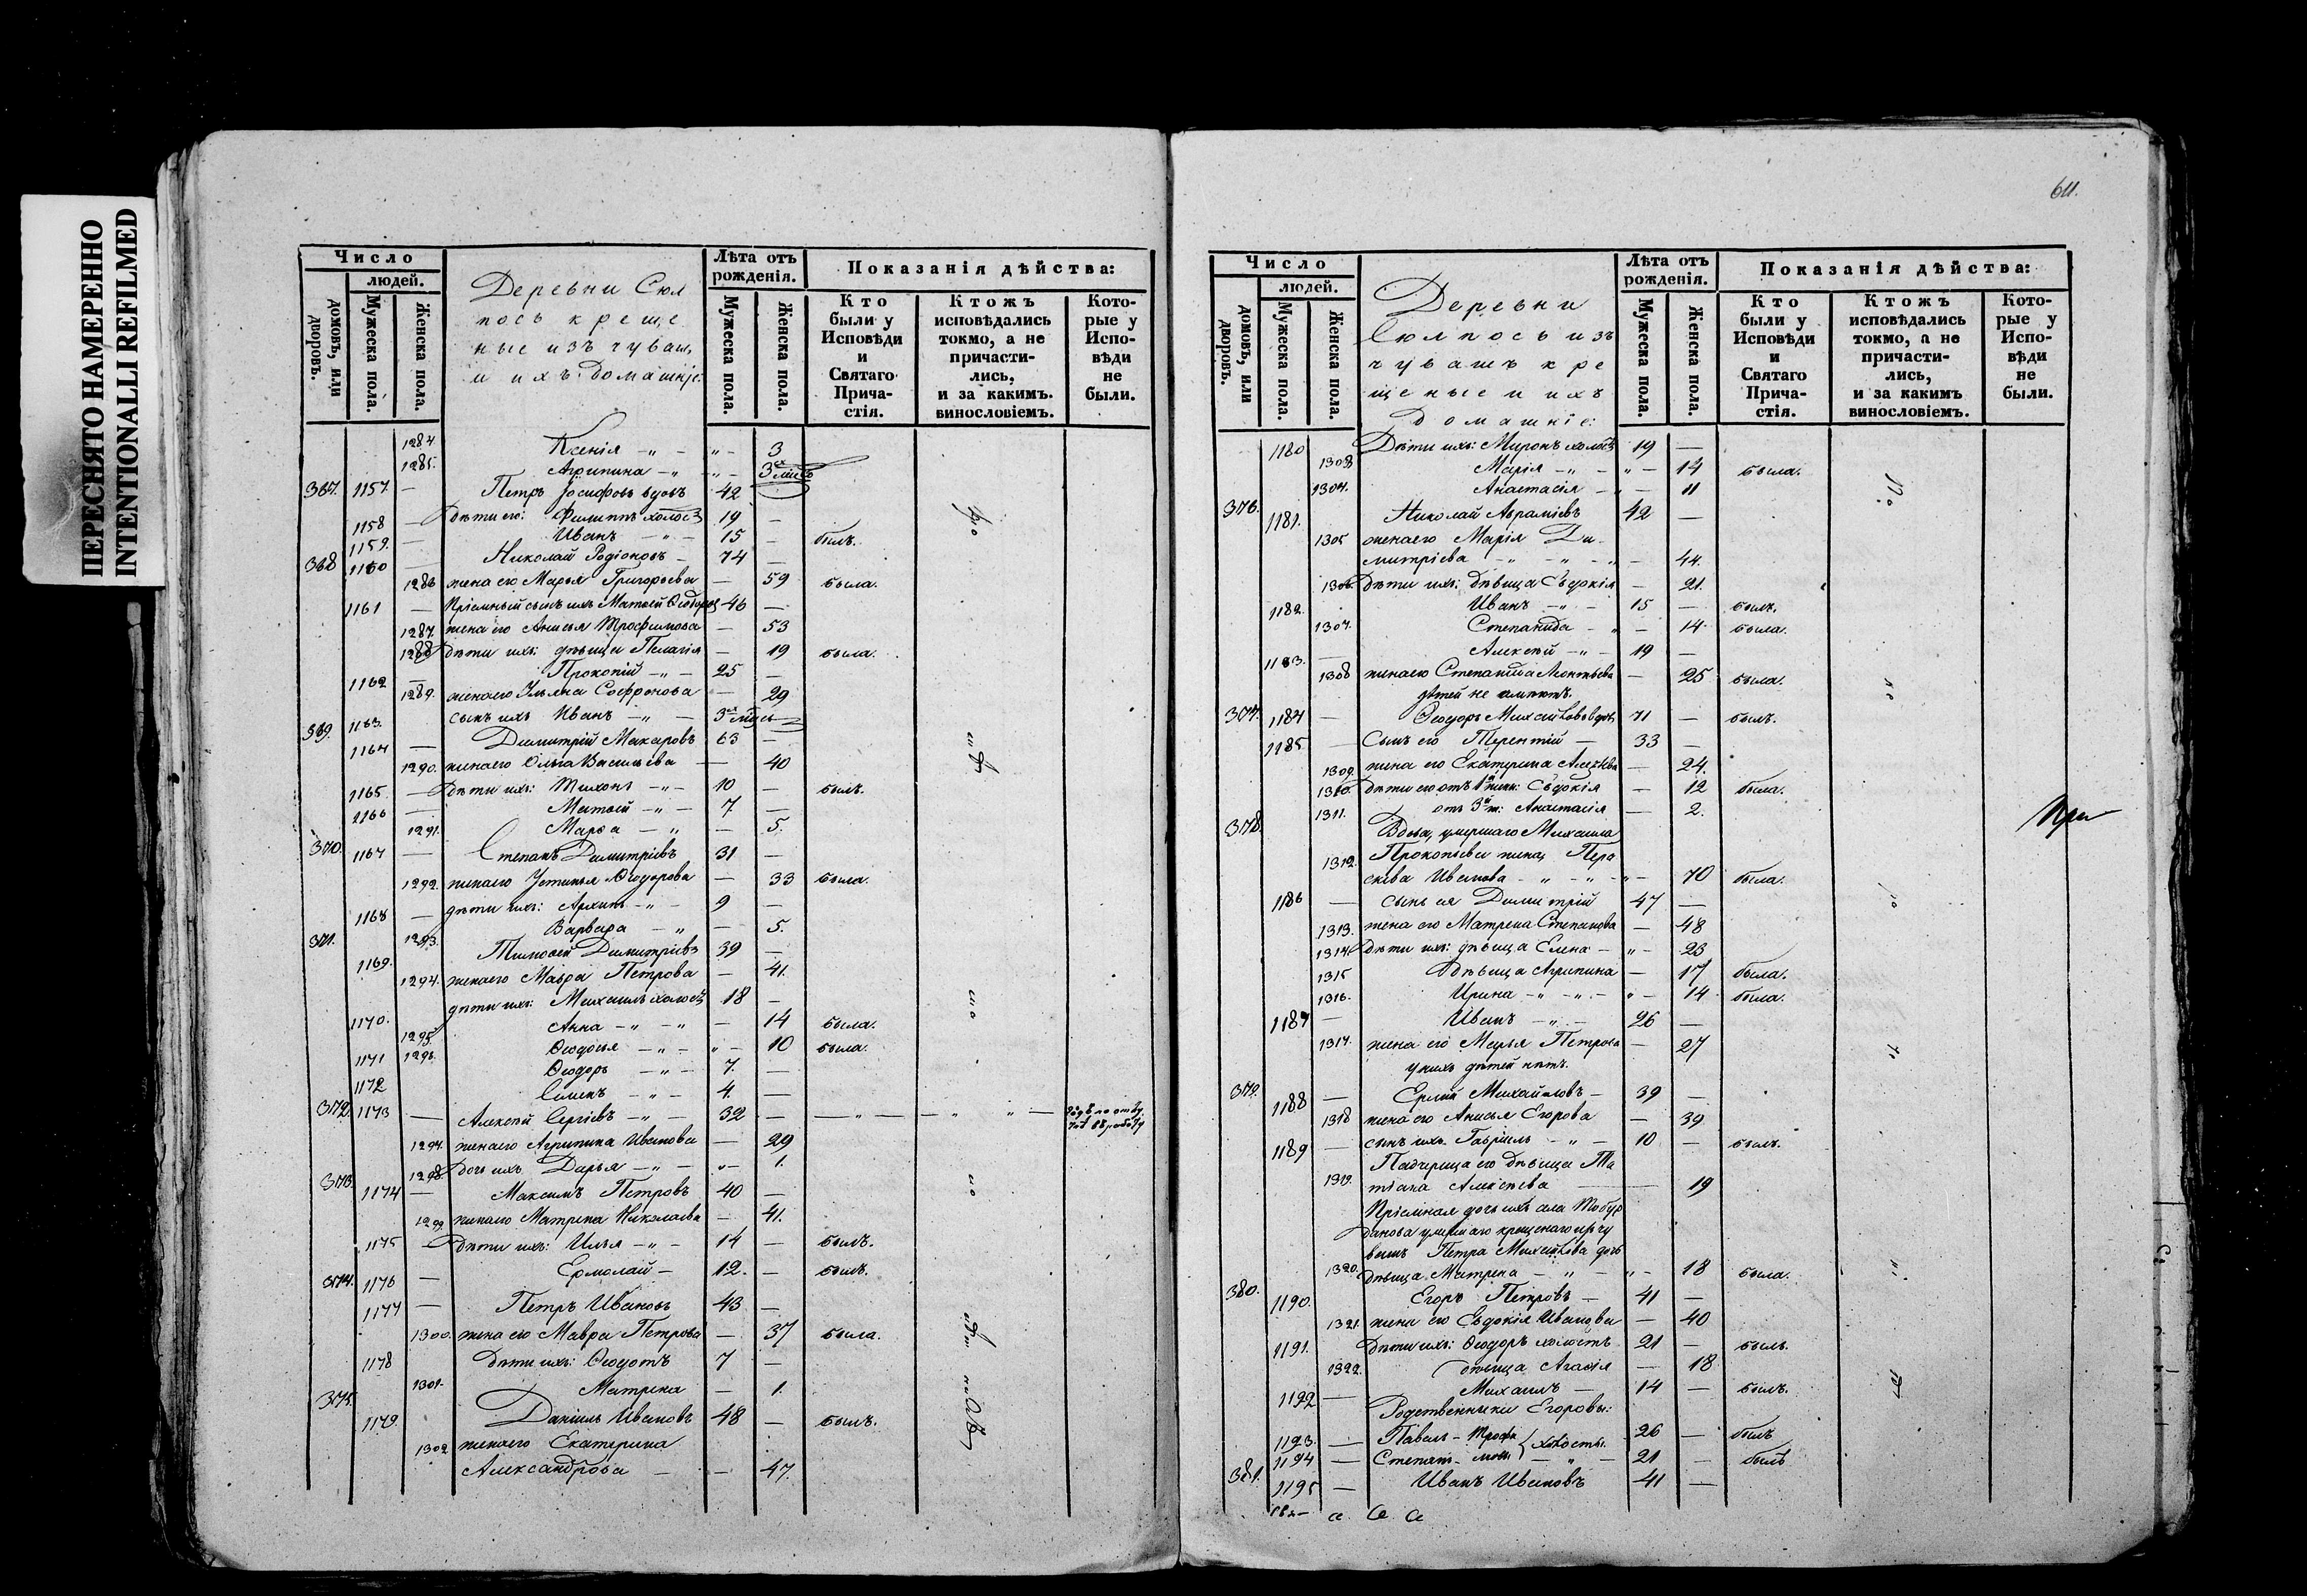 ПЕРЕСНЯТО НАМЕРЕННО
INTENTIONALLI REFILMED
Число
людей.
домовъ, или дворовъ.
Мужеска пола.
Женска пола.
Деревни Сюл
посъ креще
ные изъ чуваш,
и ихъ домашніе:
Лѣта отъ рожденія.
Мужеска пола.
Женска пола.
Показанія дѣйства:
Кто были у Исповѣди и Святаго Прича-стія.
Ктожъ исповѣдались токмо, а не причасти-лись, и за какимъ. винословіемъ.
Кото-рые у Испо-вѣди не были.
1284. Ксенія 3
1285. Агрипина
367. 1157. — Петръ Іосифовъ вдовъ 42
1158 — дѣти его: Филиппъ холос. 19 —
1159. — Иванъ 15 — былъ.
368 1160 — Николай Родіоновъ 74 —
1286 жена его Марья Григорьева — 59 была.
1161 — Пріемный сынъ ихъ Матвей Ѳедоров 46 —
1287. жена его Анисья Трофимова — 53
1288 дѣти ихъ: дѣвица Пелагія — 19 была.
1162 — Прокопій 25 —
1289. жена его Ульяна Софронова — 29
1163. сынъ ихъ Иванъ
369. 1164 — Димитрій Макаровъ 63 —
1290. жена его Ольга Васильева — 40
1165 — Дѣти ихъ: Тихонъ 10 — былъ.
1166 — Матвей 7. —
1291. Марѳа — 5.
370. 1167 — Степанъ Димитріевъ 31 —
1292. жена его Устинья Ѳедорова — 33 была.
1168 — дѣти ихъ: Архипъ 9 —
1293. Варвара — 5.
371. 1169. Тимоѳей Димитріевъ 39 —
1294. жена его Мавра Петрова — 41.
1170. дѣти ихъ: Михаилъ холос. 18 —
1295. Анна — 14 была.
1296. Ѳеодосья 10 была.
1171 Ѳеодоръ 7. —
1172 Семенъ 4. —
372. 1173 — Алексѣй Сергіевъ 32 —
1297. жена его Агрипина Иванова — 29
1298. Дочь ихъ Дарья 1.
373. 1174 — Максимъ Петровъ 40 —
1299. жена его Матрена Николаева — 41.
1175 — Дѣти ихъ: Илья 14 — былъ.
1176 — Ермолай 12. — былъ.
374. 1177 — Петръ Ивановъ 43 —
1300. жена его Мавра Петрова — 37 была.
1178 Дѣти ихъ: Ѳеодотъ 7 —
1301. Матрена — 1.
375. 1179. Даніилъ Ивановъ 48 — былъ.
1302 жена его Екатерина
Александрова — 47.
611.
Число
людей.
домовъ, или дворовъ.
Мужеска пола.
Женска пола.
Деревни
Сюлпосъ изъ
чувашъ кре
щеные и ихъ
домашніе:
Лѣта отъ рожденія.
Мужеска пола.
Женска пола.
Показанія дѣйства:
Кто были у Исповѣди и Святаго Прича-стія.
Ктожъ исповѣдались токмо, а не причасти-лись, и за какимъ винословіемъ.
Кото-рые у Испо-вѣди не были.
1180 Дѣти ихъ: Миронъ холос. 19 —
1303 Марія 14 была.
1304. Анастасія 11
376. 1181. Николай Аврамievъ 42 —
1305 жена его Марія Ди-
митріева — 44.
1306. Дѣти ихъ: дѣвица Евдокія — 21.
1182. Иванъ 15 — былъ.
1307. Степанида — 14. была.
1183. — Алексѣй 19 —
1308 жена его Степанида Леонтьева — 25 была.
дѣтей не имѣютъ.
377. 1184 — Ѳеодоръ Михайловъ вдов. 71 — былъ.
1185. — Сынъ его Терентій 33 —
1309. жена его Екатерина — 24.
1310. Дѣти его отъ 1й жены: Евдокія — 12 была.
1311. отъ 3й ж: Анастасія — 2.
378. Вдова, умершаго Михаила
1312. Прокопьева жена, Пера
скева Иванова 70 была.
1186 — сынъ ея Димитрій 47 —
1313. жена его Матрена Степанова — 48
1314. Дѣти ихъ: дѣвица Елена 23
1315 дѣвица Агрипина — 17 была.
1316. Ирина 14 была.
1187 — Иванъ 26 —
1317. жена его Марья Петрова — 27
у нихъ дѣтей нѣтъ.
379. 1188 — Ермий Михайловъ 39 —
1318 жена его Анисья Егорова — 39
1189 — сынъ ихъ Гавріилъ 10 — былъ.
Падчерица его дѣвица Та
1319. тіана Алексѣева — 19
Пріемная дочь ихъ села Тобур
данова умершаго крещенаго из чу
вашъ Петра Михайлова дочь
1320. дѣвица Матрена 18 была.
380. 1190. Егоръ Петровъ 41 —
1321 жена его Евдокія Иванова — 40
1191. Дѣти ихъ: Ѳеодоръ холостъ 21 — былъ.
1322. дѣвица Агаѳія — 18
1192 — Михаилъ 14 — былъ.
Родственники Егоровы:
1193. — Павелъ холосты. 26 — былъ
1194 — Степанъ 21 — былъ
381. 1195 — Иванъ Ивановъ 41 —